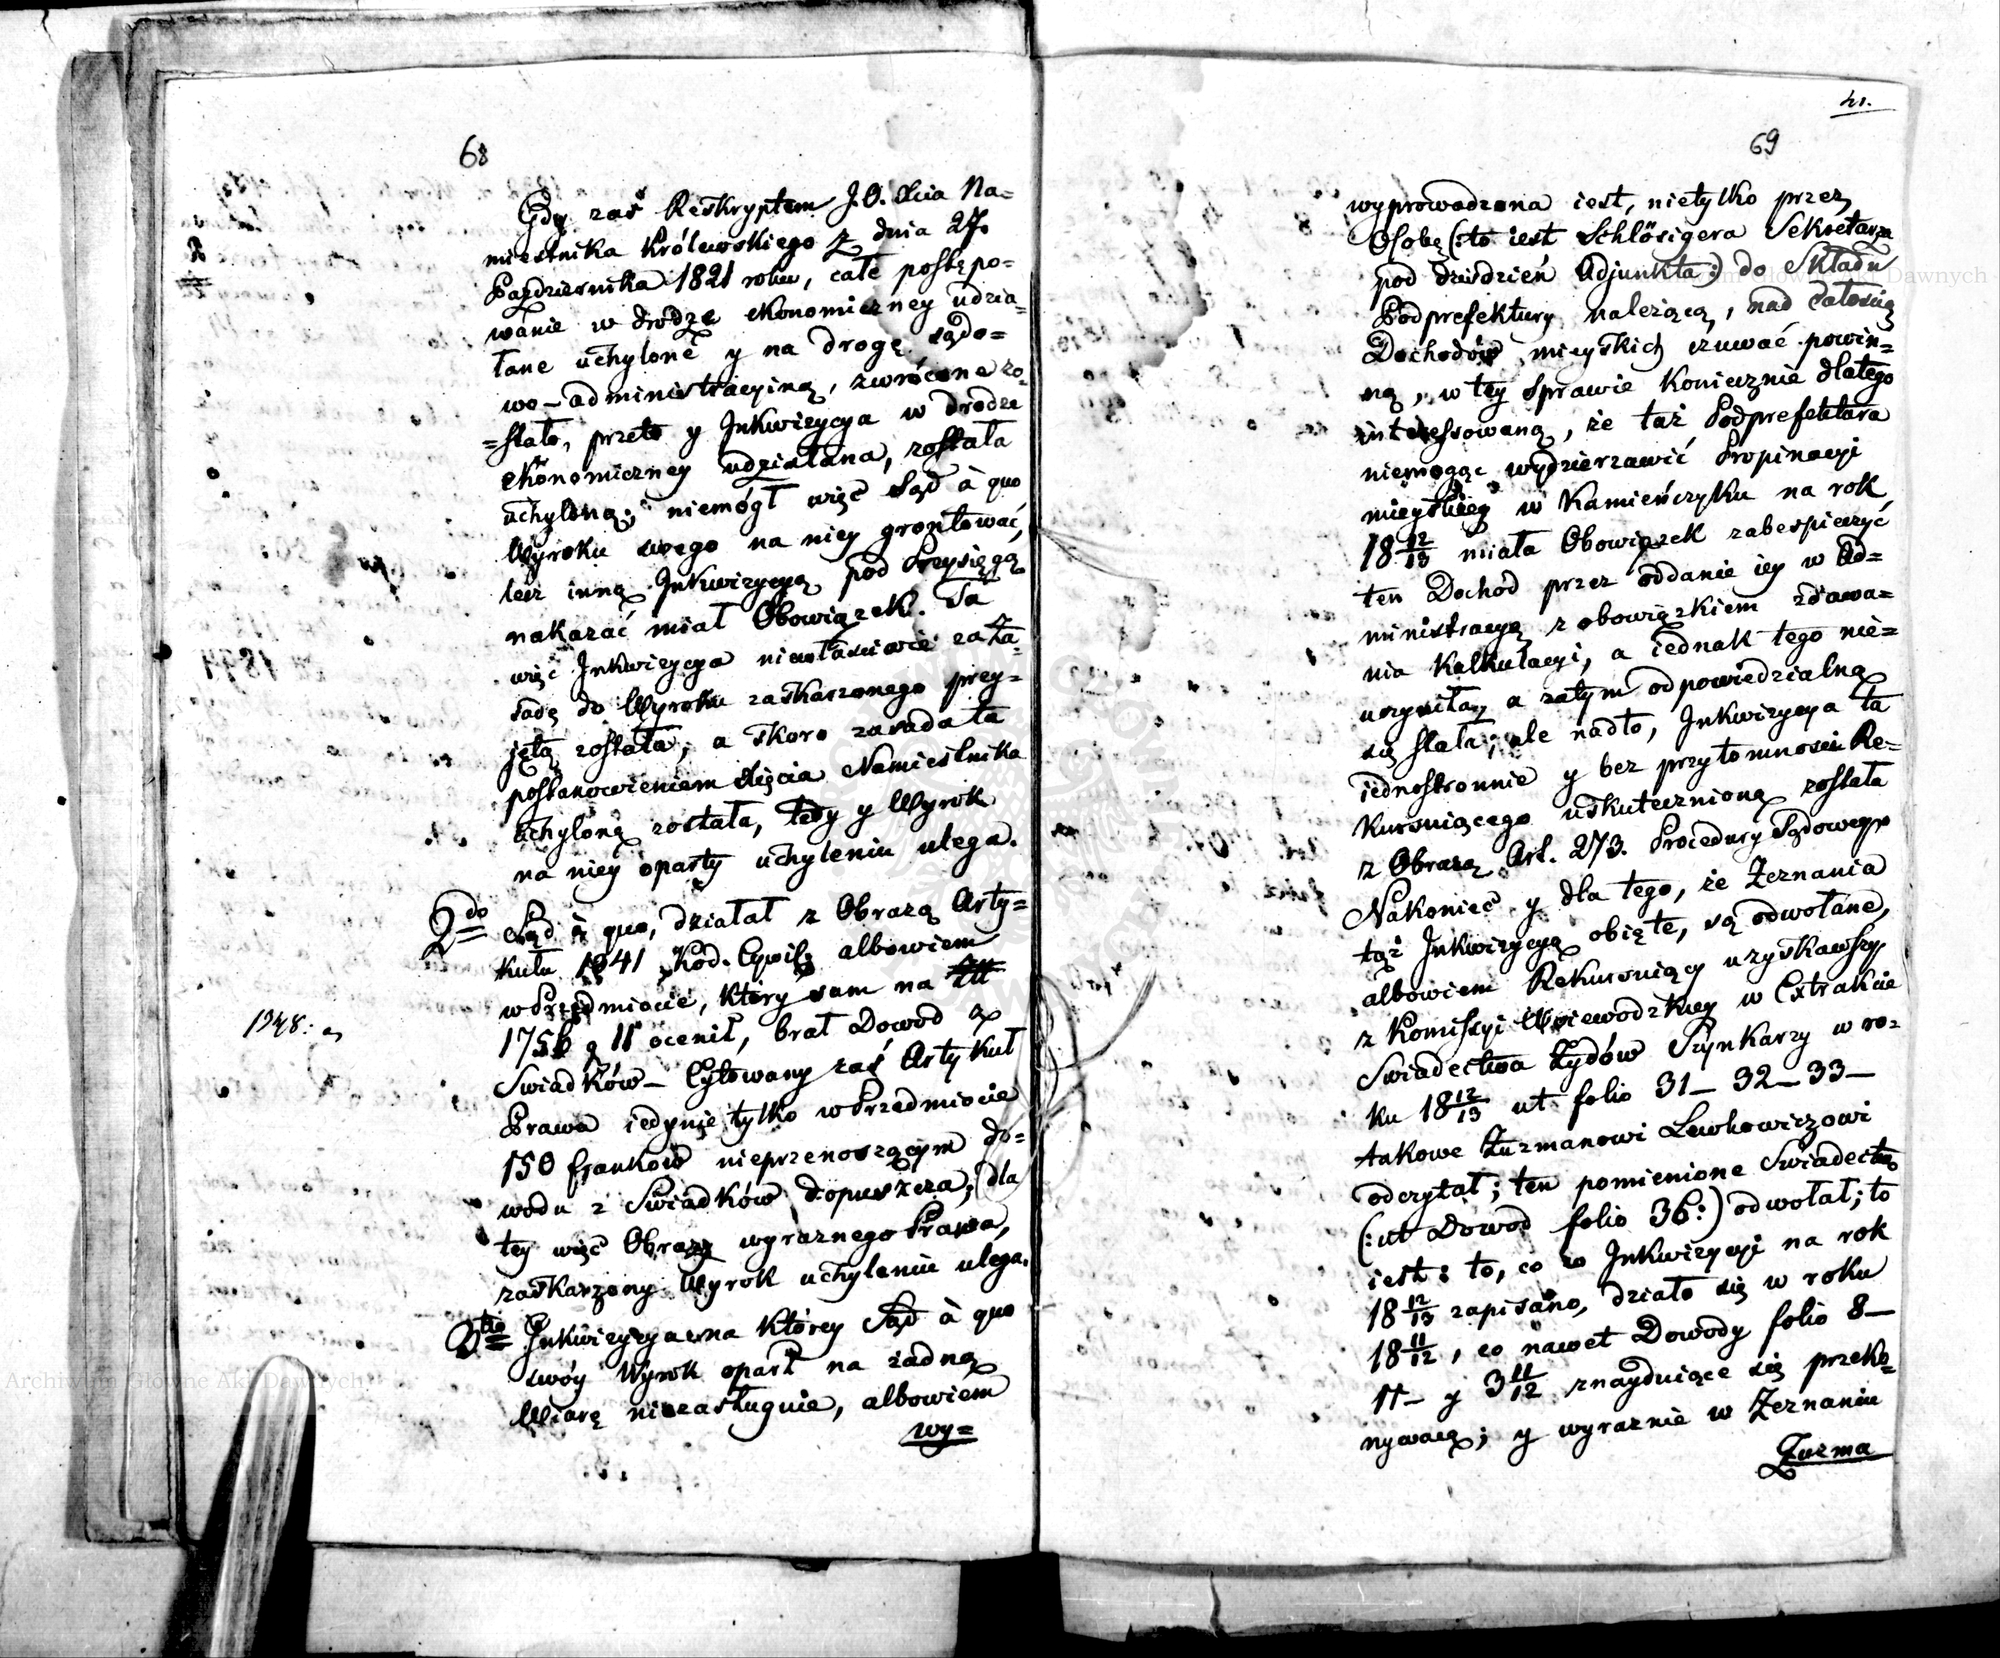 68
Gdy zaś Reskryptem J.O. Xcia Na=
miestnika Królewskiego z dnia 27.
Października 1821 roku, całe postępo=
wanie w drodze ekonomiczney udzia=
łane uchyloné y na drogę sądo=
wo-administracyiną, zwrócone zo=
=stało, przeto y Inkwizycya w drodze
ekonomiczney udziałana, została
uchyloną; niemógł więc Sąd à quo
Wyroku swego na niey grontować,
lecz inną Inkwizycyą pod Przysięgą
nakazać miał Obowiązek. Ta
więc Inkwizycya niewłaściwie za Za=
sadę do Wyroku zaskarzonego prey=
jętą została, a skoro zasada ta
postanowieniem Xięcia Namiestnika
uchyloną została, tedy y Wyrok
na niey oparty uchyleniu ulega.
2do Sąd à quo, działał z Obrazą Arty=
kułu 1341 Kod. Cywil: albowiem
w Przedmiocie, który sam na
175 11 ocenił, brał Dowod z
Swiadków - Cytowany zaś Artykuł
Prawa iedynie tylko w Przedmiocie
150 franków nieprzenoszącym do=
wodu z Swiadków dopuszcza; dla
tey więc Obrazy wyraznego Prawa,
zaskarzony Wyrok uchyleniu ulega.
3tio Inkwizycya na którey Sąd à quo
swóy Wyrok oparł na żadną
Wiarę niezasługuie, albowiem
wy=
69
wyprowadzona iest, nietylko przez
Osobę (: to iest Schlösigera Sekretarza
pod dziśdzień Adjunkta :) do Składu
Podprefektury należącą, nad Całością
Dochodów mieyskich czuwać powin=
ną, w tey Sprawie koniecznie dlatego
interessowaną, że taż Podprefektura
niemogąc wydzierzawić Propinacyi
mieyskiey w Kamieńczyku na rok
18 12/13 miała Obowiązek zabespieczyć
ten Dochod przez oddanie iey w Ad=
ministracyą z obowiązkiem zdawa=
nia Kalkulacyi, a iednak tego nie=
uczyniła, a zatym odpowiedzialną
się stała; ale nadto, Inkwizycya ta
iednostronnie y bez przytomności Re=
kursuiącego uskutecznioną została
z Obrazą Art. 273. Procedury Sądowey
Nakoniec y dla tego, że Zeznania
tąż Inkwizycyą obięte, są odwołane,
albowiem Rekursuiący uzyskawszy
z Komissyi Woiewodzkiey w Extrakcie
Swiadectwa Żydów Szynkarzy w ro=
ku 18 12/13 ut folio 31 - 32 - 33 -
takowe Zurmanowi Lewkowiczowi
odczytał; ten pomienione Swiadectwo
(: ut Dowod folio 36 :) odwołał; to
iest: to, co w Inkwizycyi na rok
18 12/13 zapisano, działo się w roku
18 11/12, co nawet Dowody folio 8 -
11 - y 3 11/12 znayduiące się przeko=
nywaią; y wyraznie w Zeznaniu
Zurma